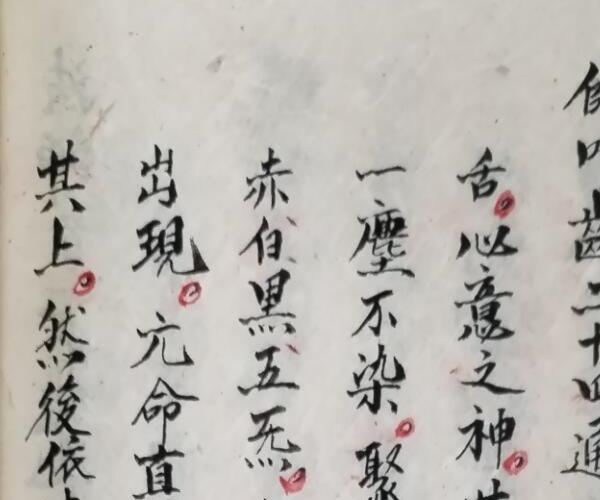 叩齒二十四通
舌。心意之神。
一塵不染。聚
赤白黑五炁。
出現。元命直
其上。然後依